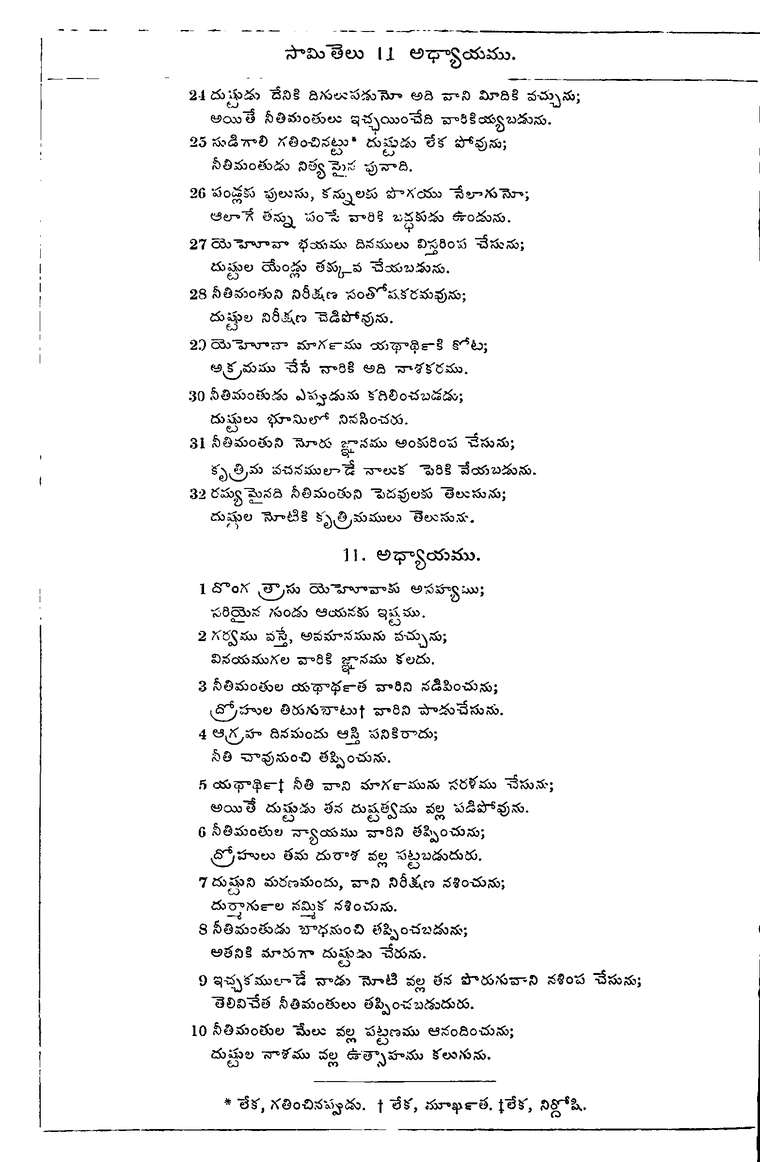 సామితెలు 11 అధ్యాయము.
24 దుష్టుడు దేనికి దిగులుపడునో అది వాని మీదికి వచ్చును;
అయితే నీతిమంతులు ఇచ్ఛయించేది వారికియ్యబడును.
25 సుడిగాలి గతించినట్టు* దుష్టుడు లేక పోవును;
నీతిమంతుడు నిత్యమైన పునాది.
26 పండ్లకు పులుసు, కన్నులకు పొగయు నేలాగునో;
ఆలాగే తన్ను పంపే వారికి బద్ధకుడు ఉండును.
27 యెహోవా భయము దినములు విస్తరింప చేసును;
దుష్టుల యేండ్లు తక్కువ చేయబడును.
28 నీతిమంతుని నిరీక్షణ సంతోషకరమవును;
దుష్టుల నిరీక్షణ చెడిపోవును.
29 యెహోవా మార్గము యథార్థికి కోట;
అక్రమము చేసే వారికి అది నాశకరము.
30 నీతిమంతుడు ఎప్పుడును కదిలించబడడు;
దుష్టులు భూమిలో నివసించరు.
31 నీతిమంతుని నోరు జ్ఞానము అంకురింప చేసును;
కృత్రిమ వచనములాడే నాలుక పెరికి వేయబడును.
32 రమ్యమైనది నీతిమంతుని పెదవులకు తెలుసును;
దుష్టుల నోటికి కృత్రిమములు తెలుసును.
11. అధ్యాయము.
1 దొంగ త్రాసు యెహోవాకు అసహ్యము;
సరియైన గుండు ఆయనకు ఇష్టము.
2 గర్వము వస్తే, అవమానమును వచ్చును;
వినయముగల వారికి జ్ఞానము కలదు.
3 నీతిమంతుల యథార్థత వారిని నడిపించును;
ద్రోహుల తిరుగుబాటు† వారిని పాడుచేసును.
4 ఆగ్రహ దినమందు ఆస్తి పనికిరాదు;
నీతి చావునుంచి తప్పించును.
5 యథార్థి‡ నీతి వాని మార్గమును సరళము చేసును;
అయితే దుష్టుడు తన దుష్టత్వము వల్ల పడిపోవును.
6 నీతిమంతుల న్యాయము వారిని తప్పించును;
ద్రోహులు తమ దురాశ వల్ల పట్టబడుదురు.
7 దుష్టుని మరణమందు, వాని నిరీక్షణ నశించును;
దుర్మార్గుల నమ్మిక నశించును.
8 నీతిమంతుడు బాధనుంచి తప్పించబడును;
అతనికి మారుగా దుష్టుడు చేరును.
9 ఇచ్చకములాడే వాడు నోటి వల్ల తన పొరుగువాని నశింప చేసును;
తెలివిచేత నీతిమంతులు తప్పించబడుదురు.
10 నీతిమంతుల మేలు వల్ల పట్టణము ఆనందించును;
దుష్టుల నాశము వల్ల ఉత్సాహము కలుగును.
* లేక, గతించినప్పుడు. † లేక, మూర్ఖత. ‡లేక, నిర్దోషి.